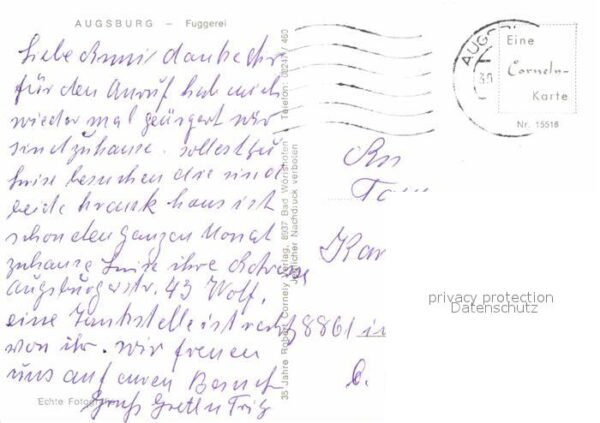 AUGSBURG – Fuggerei
Liebe Anni danke dir
für den Anruf hab mich
wieder mal geärgert wir
sind zuhause. solltest zu
Luise besuchen die sind
beide krank hans ist
schon den ganzen Monat
zuhause Luise ihre Adresse
Augsburgerstr. 43 Wolf,
eine Tankstelle ist rechts
von ihr. wir freuen
uns auf euren Besuch
Gruß Gretl u Fritz
Echte Fotografie
35 Jahre Robert Cornely Verlag, 8937 Bad Wörishofen Telefon: 08247 / 460
Jeglicher Nachdruck verboten
Eine
Cornely-
Karte
Nr. 15516
An
Kar
8861 in
b.
privacy protection
Datenschutz